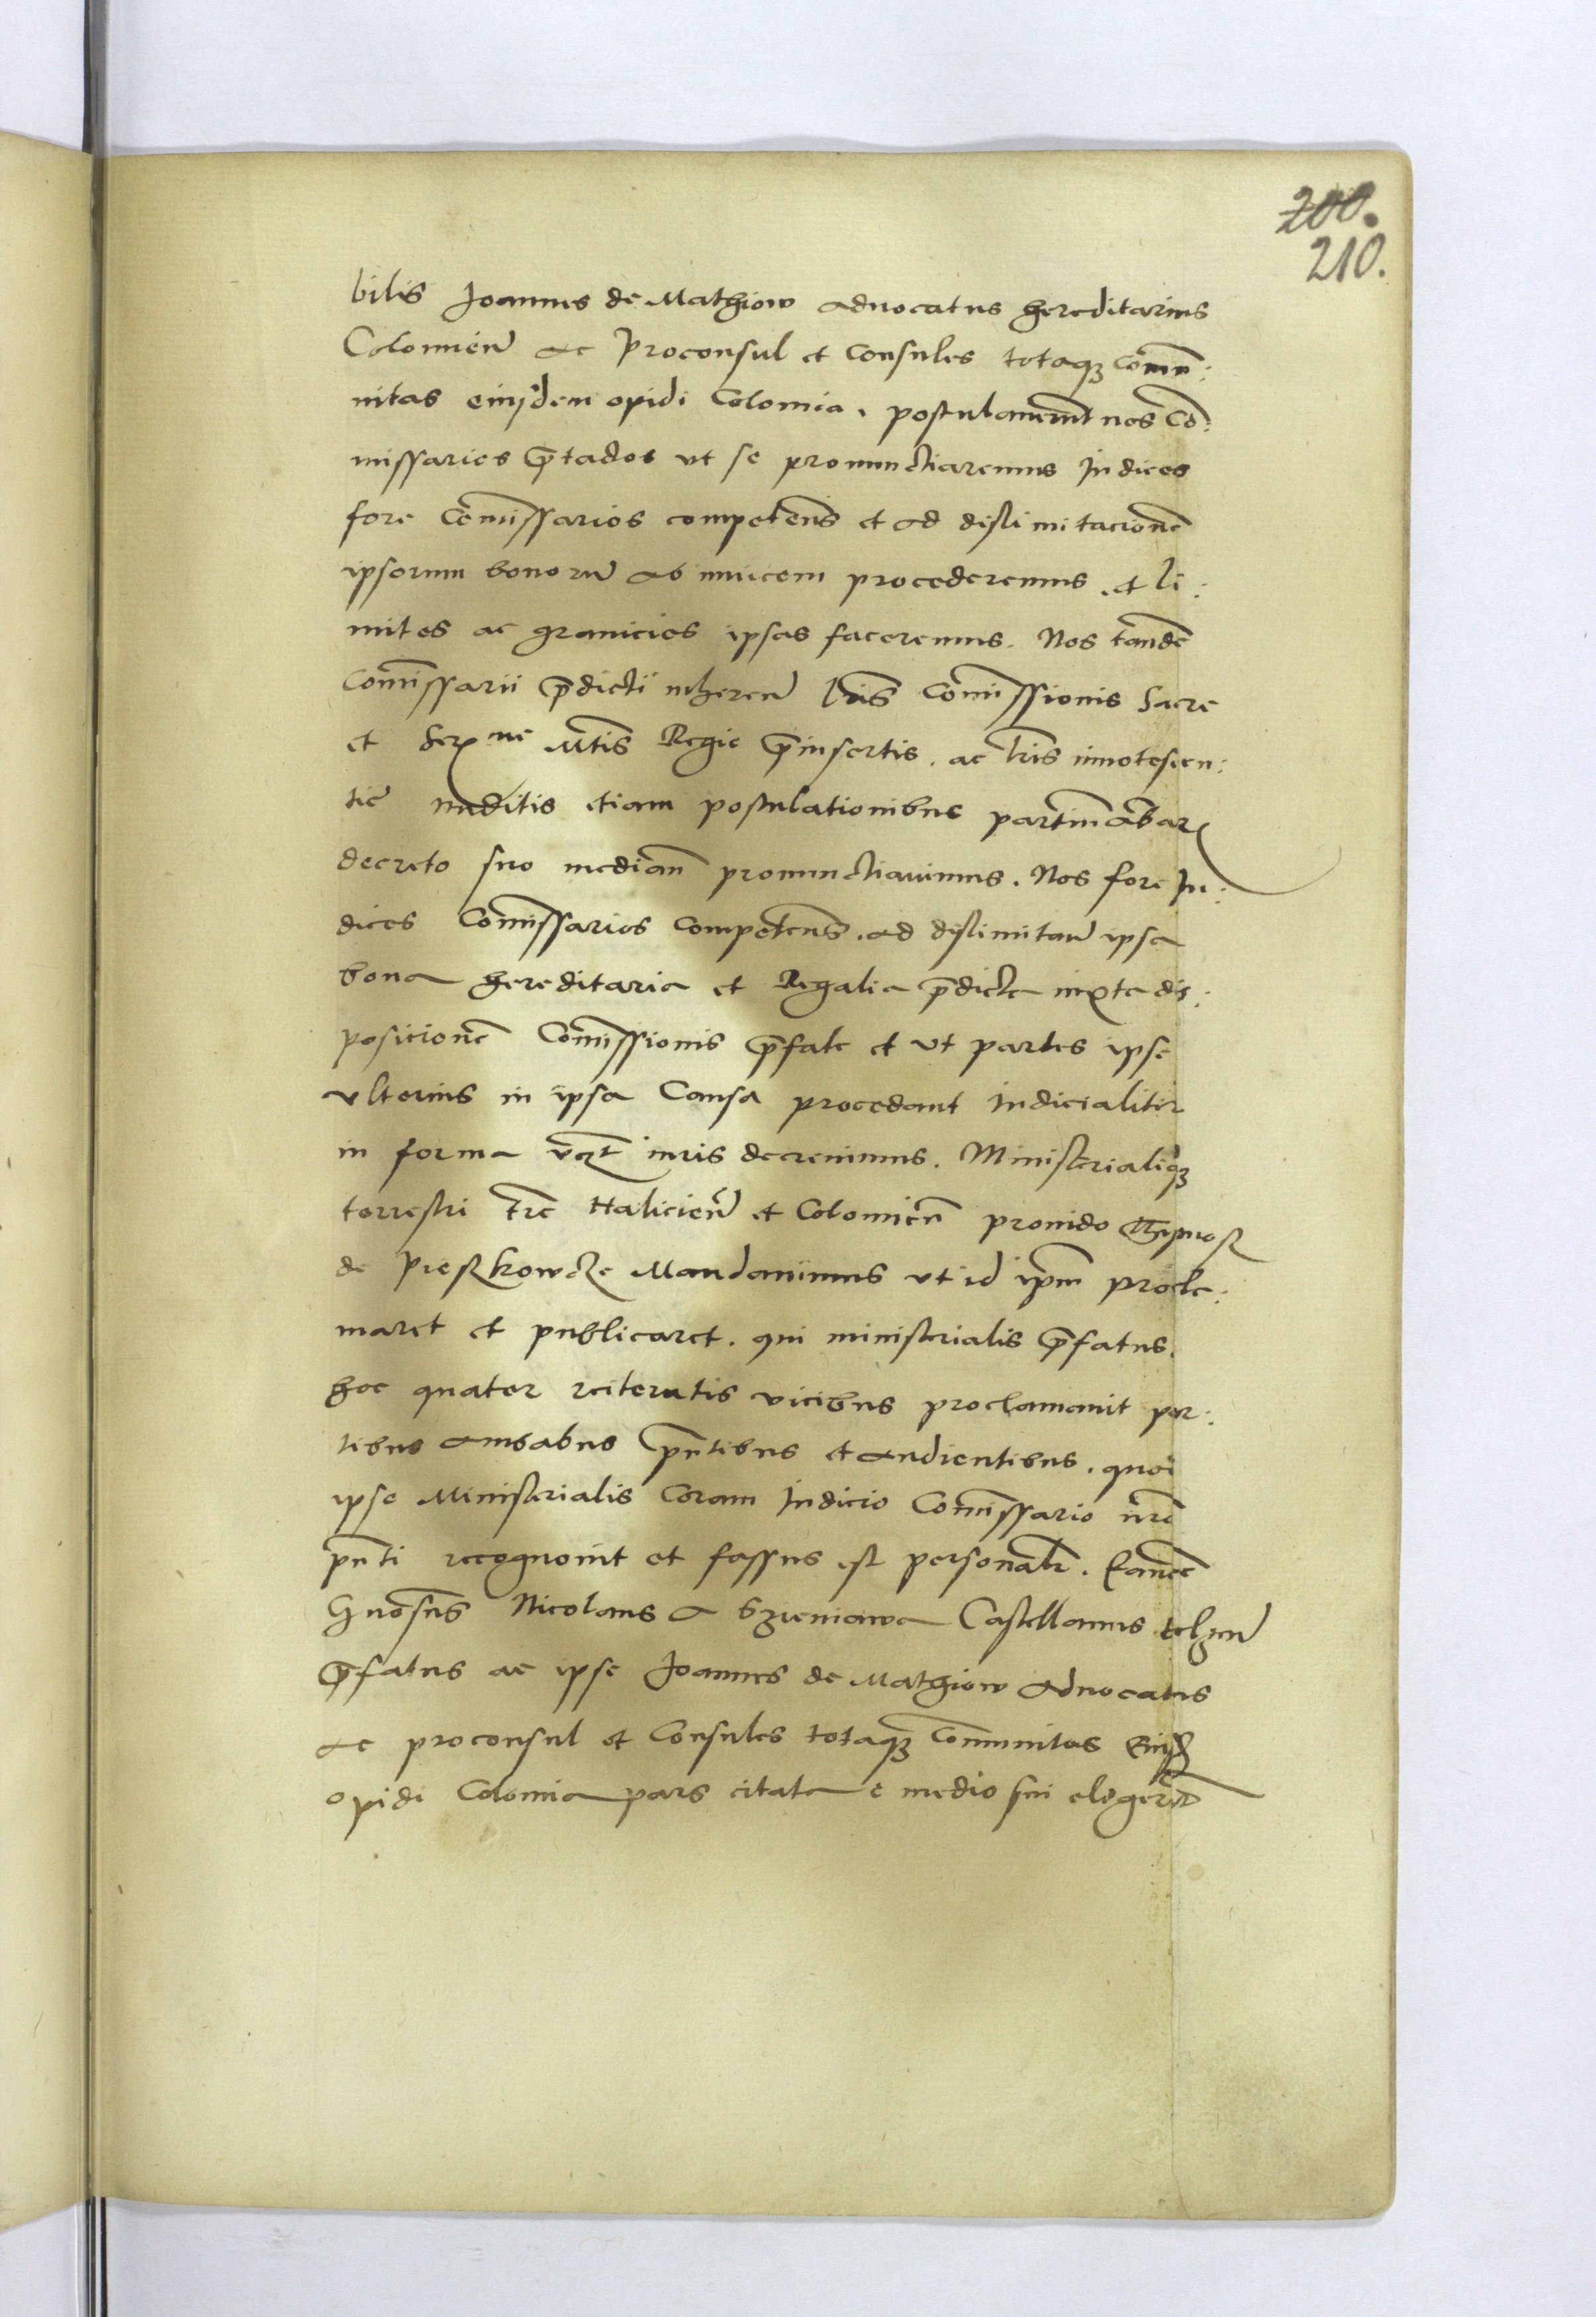 200.
210.
bilis Joannes de Mathiow advocatus hereditarius
Colomien ac Proconsul et Consules totaqz comu:
nitas eiusdem opidi Colomia. postulaverunt nos Co:
missarios ptactos ut se pronunctiaremus Iudices
fore Comissarios competens et ad dislimitacione
ipsorum bonoru ab invicem procederemus. et li:
mites ac granicies ipsas faceremus. Nos tande
Comissarii pdicti inheren lris Comissionis Sacre
et Serme Mtis Regie pinsertis. ac lris innotescen:
tie auditis etiam postulationibus partium
decreto suo median pronunctiavimus. Nos fore Iu:
dices Comissarios Competens. ad dislimitan ipsa
bona hereditaria et Regalia pdicta iuxta dis:
posicione Comissionis pfate et ut partes ipse
ulterius in ipsa Causa procedant Iudicialiter
in forma iuris decrevimus. Ministerialiqz
terrestri tre Halicien et Colomien provido
de Pieskowcze Mandavimus ut id ipm procla:
maret et publicaret. qui ministerialis pfatus.
hoc quater reiteratis vicibus proclamavit par:
tibus ambabus pntibus et audientibus. quod
ipse Ministerialis Coram Iudicio Comissario nro
pnti recognovit et fassus est personalr.
Gnosus Nicolaus a Szieniawa Castellanus
pfatus ac ipse Joannes de Mathiow advocatus
ac proconsul et Consules totaqz Comunitas eiusd
opidi Colomia pars citata e medio sui elegert